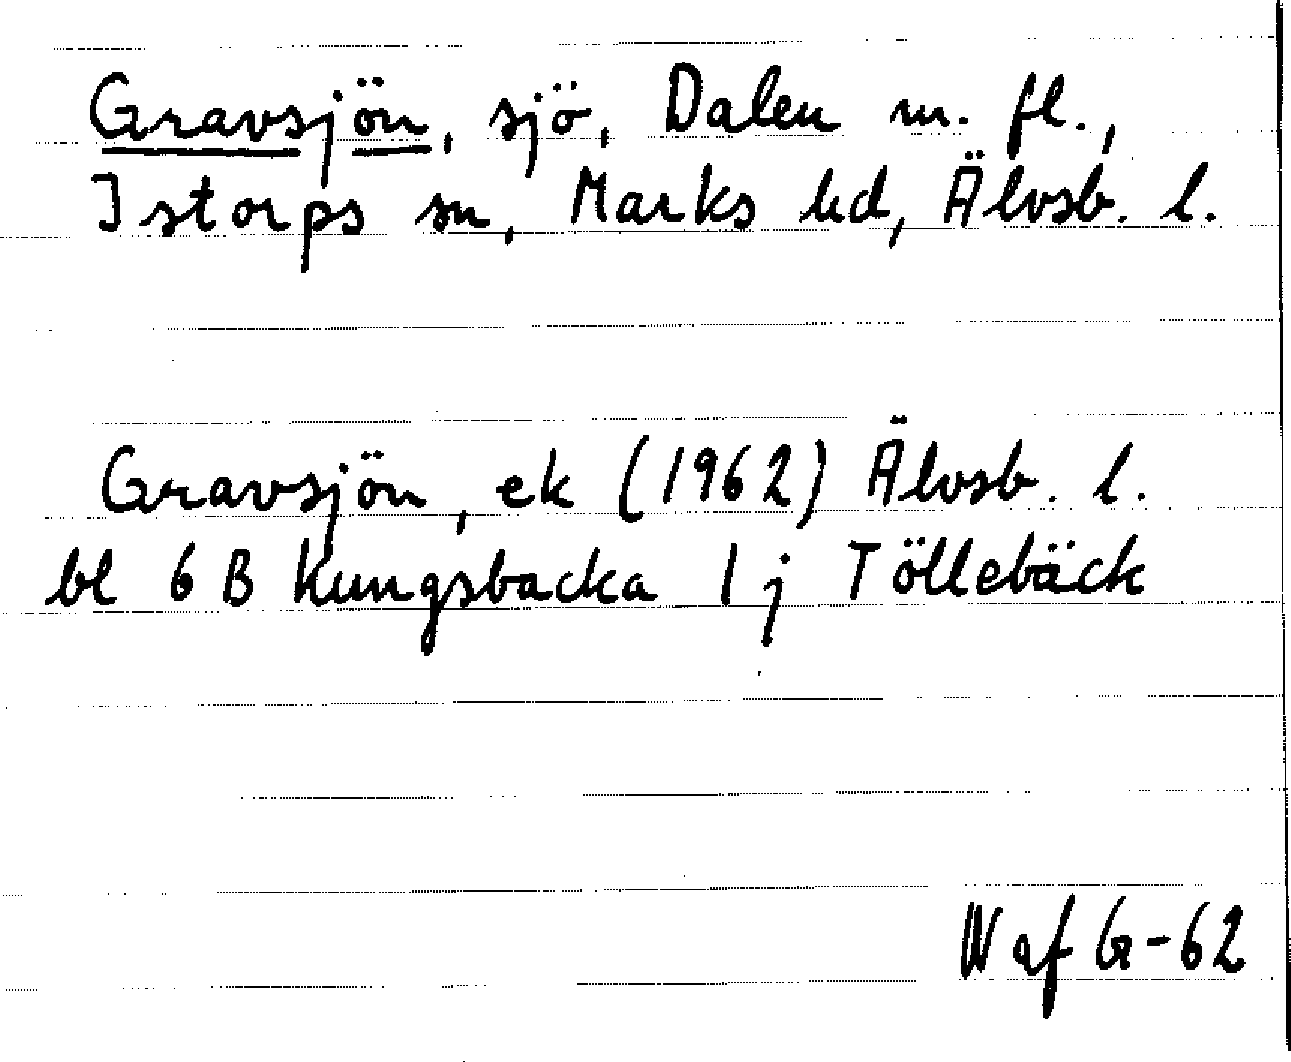 Gravsjön, sjö, Dalen m. fl.,
Istorps sn, Marks hd, Älvsb. l.
Gravsjön, ek (1962) Älvsb. l.
bl 6 B Kungsbacka 1 j Töllebäck
W af G-62